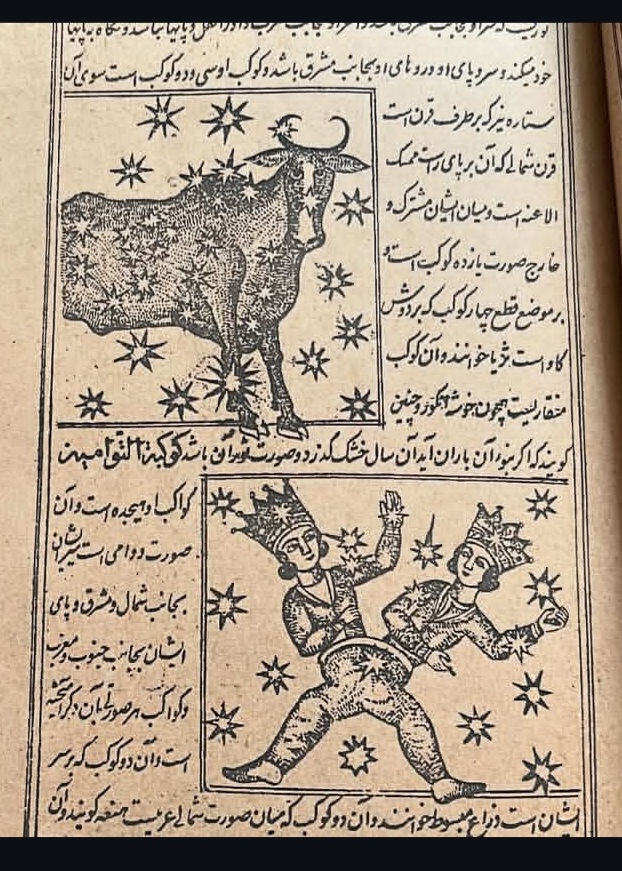 خود میکند و سر و پای او و روهای او بجانب مشرق باشد و کوکب او سی و دو کوکب است سوی آن
ستاره نیز که بر طرف قرن است
قرن شمالی که آن بر پای راست ممسک
الاعنه است و میان ایشان مشترک و
خارج صورت یازده کوکب است و
بر موضع قطع چهار کوکب که بر دوش
کاو است ثریا خوانند و آن کوکب
همچون خوشه انکور و چنین
کویند که اکر بنوء آن باران آید آن سال خشک کذرد و صورت ثور آن باشد کوکبة التوامین
کواکب او هیجده است و آن
صورت دو آدمی است سر ایشان
بجانب شمال و مشرق و پای
ایشان بجانب جنوب و مغرب
و کواکب هر صورتی بآن دیکر
است و آن دو کوکب که بر سر
ایشان است ذراع مبسوط خوانند و آن دو کوکب که میان صورت شمالی است هنعه کویند و آن